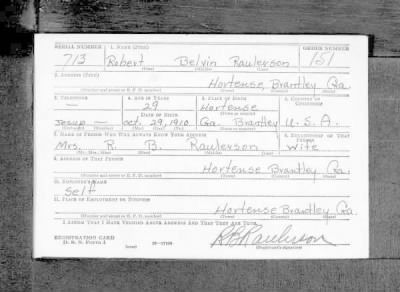 SERIAL NUMBER 1. NAME (Print) ORDER NUMBER
713 Robert Belvin Raulerson 151
(First) (Middle) (Last)
2. ADDRESS (Print)
Hortense, Brantley Ga.
(Number and street or R. F. D. number) (Town) (County) (State)
3. TELEPHONE 4. AGE IN YEARS 5. PLACE OF BIRTH 6. COUNTRY OF CITIZENSHIP
— 29 Hortense
DATE OF BIRTH (Town or county)
Jesup — Oct. 29, 1910 Ga. Brantley U.S.A.
(Exchange) (Number) (Mo.) (Day) (Yr.) (State or country)
7. NAME OF PERSON WHO WILL ALWAYS KNOW YOUR ADDRESS 8. RELATIONSHIP OF THAT PERSON
Mrs. R. B. Raulerson Wife
(Mr., Mrs., Miss) (First) (Middle) (Last)
9. ADDRESS OF THAT PERSON
Hortense Brantley Ga.
(Number and street or R. F. D. number) (Town) (County) (State)
10. EMPLOYER'S NAME
Self
11. PLACE OF EMPLOYMENT OR BUSINESS
Hortense Brantley Ga.
(Number and street or R. F. D. number) (Town) (County) (State)
I AFFIRM THAT I HAVE VERIFIED ABOVE ANSWERS AND THAT THEY ARE TRUE.
REGISTRATION CARD
D. S. S. Form 1 (over) R B Raulerson
(Registrant's signature)